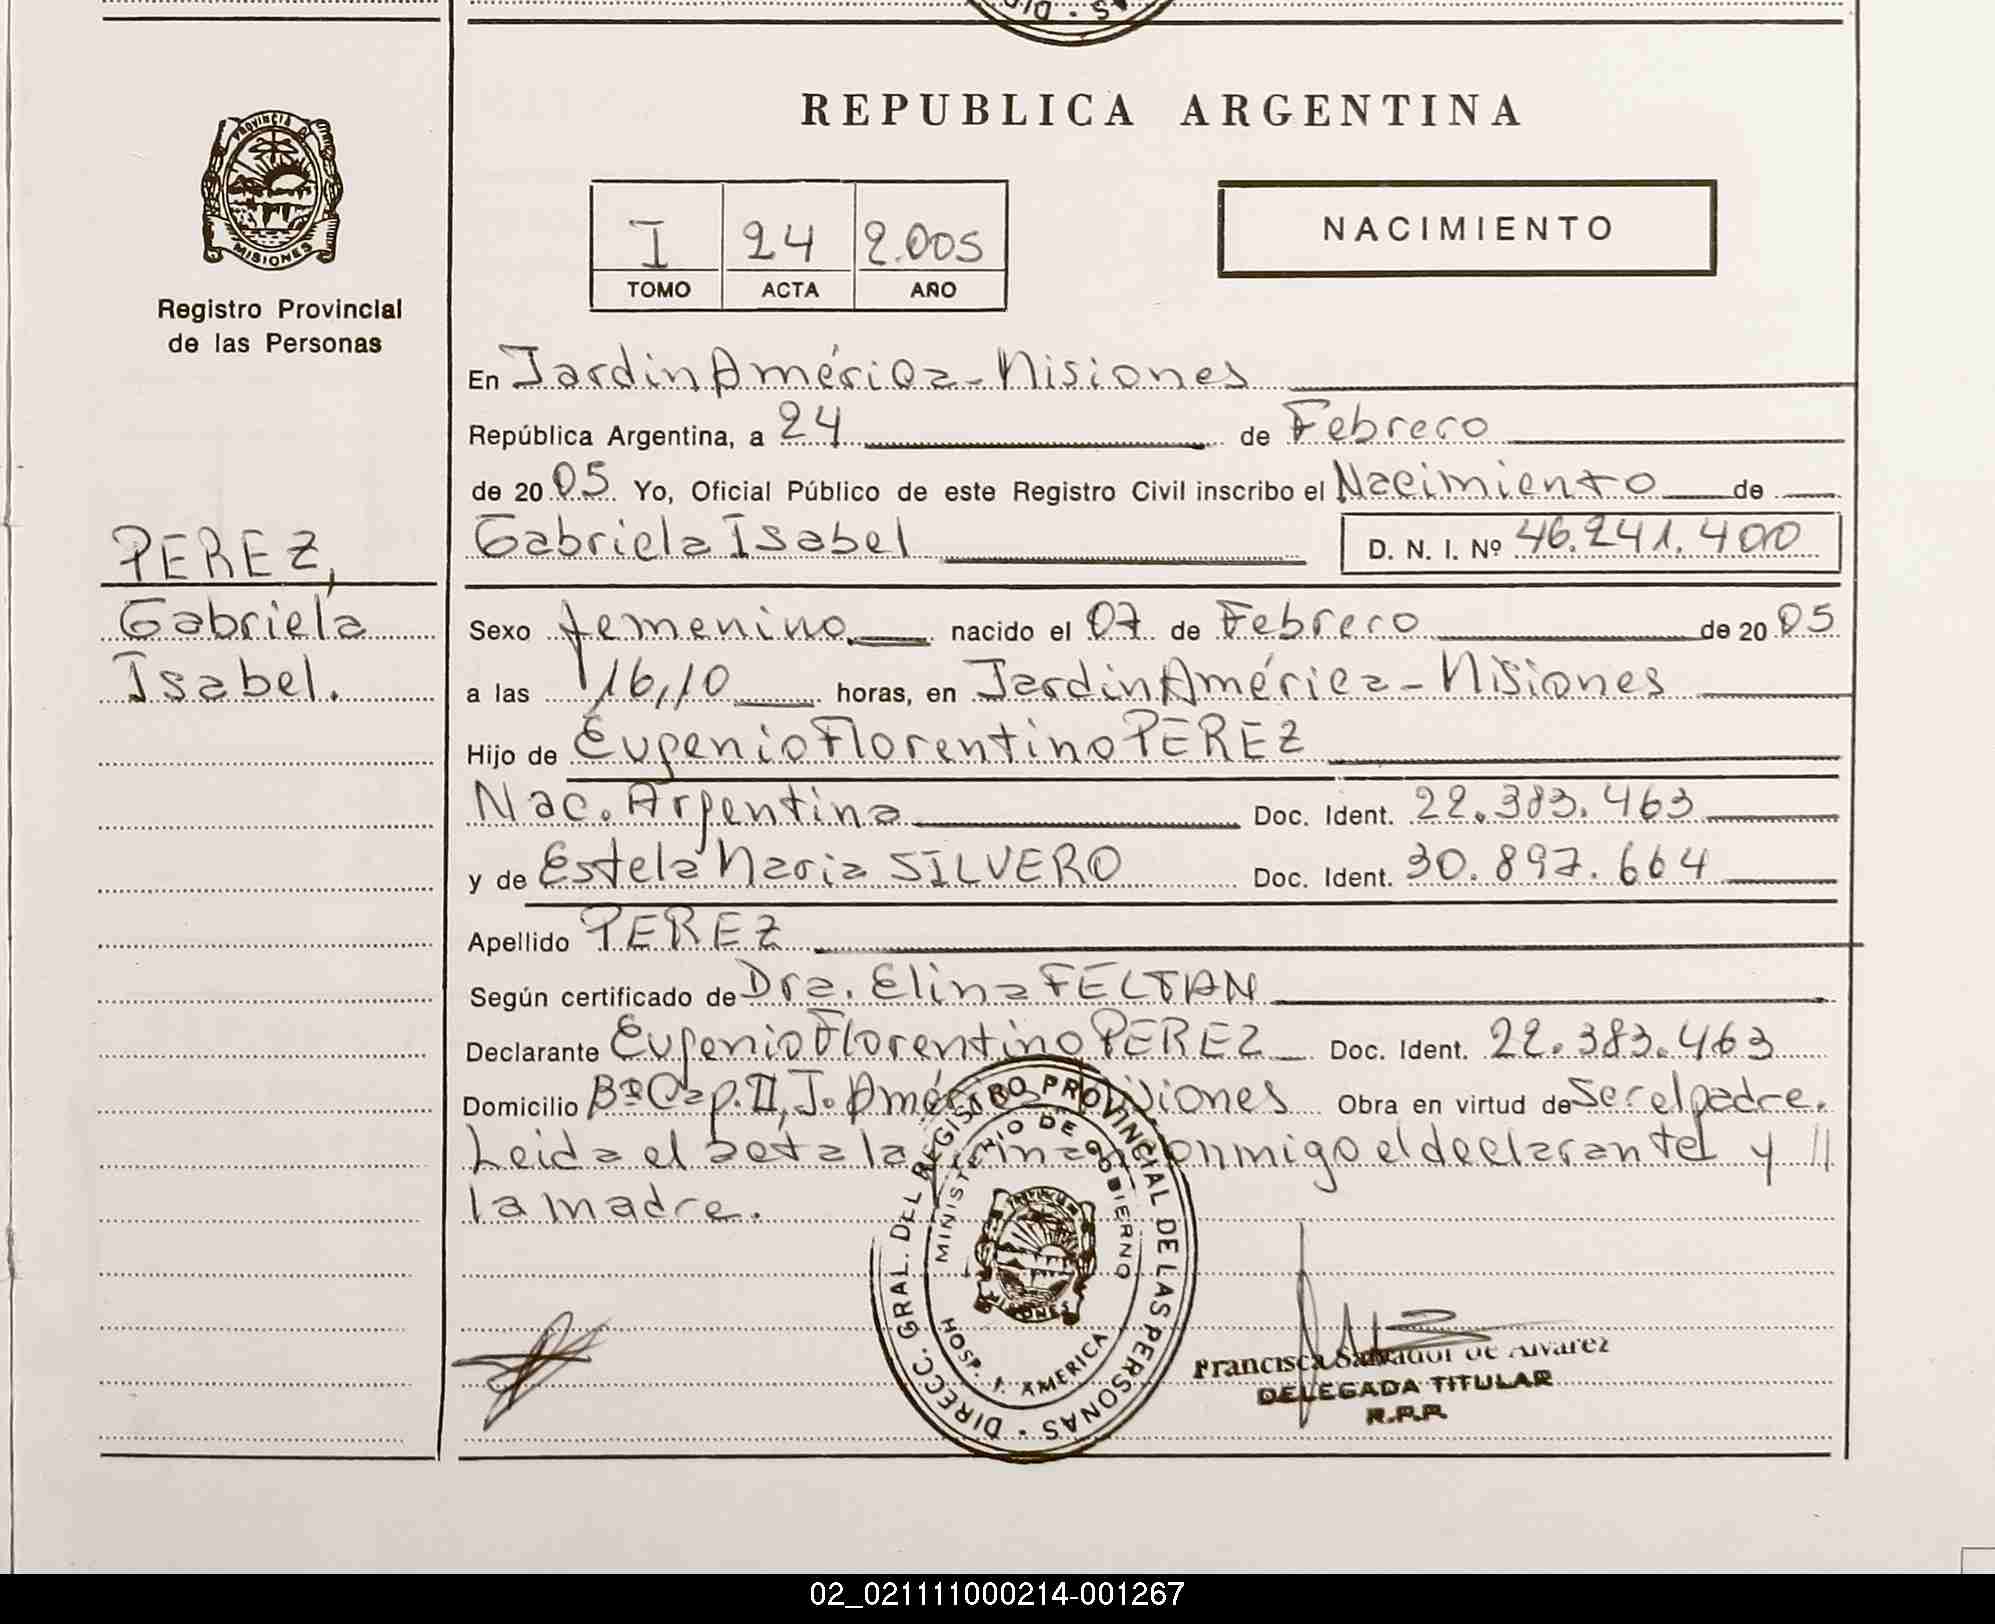 REPUBLICA ARGENTINA
PROVINCIA D
MISIONES
Registro Provincial
de las Personas
I 24 2.005
TOMO ACTA AÑO
NACIMIENTO
En Jardin América - Misiones
República Argentina, a 24 de Febrero
de 2005 Yo, Oficial Público de este Registro Civil inscribo el Nacimiento de
Gabriela Isabel D. N. I. Nº 46.241.400
PEREZ,
Gabriela
Isabel.
Sexo femenino nacido el 07 de Febrero de 2005
a las 16,10 horas, en Jardin América - Misiones
Hijo de Eugenio Florentino PEREZ
Nac. Argentina Doc. Ident. 22.383.463
y de Estela Maria SILVERO Doc. Ident. 30.897.664
Apellido PEREZ
Según certificado de Dra. Elina FELTAN
Declarante Eugenio Florentino PEREZ Doc. Ident. 22.383.463
Domicilio Bº Cap. II, J. América Misiones Obra en virtud de ser el padre.
Leida el acta la firman conmigo el declarante y //
la madre.
DIRECC. GRAL. DEL REGISTRO PROVINCIAL DE LAS PERSONAS
MINISTERIO DE GOBIERNO
MISIONES
HOSP. J. AMERICA
Francisca Salvador de Alvarez
DELEGADA TITULAR
R.P.P.
02_021111000214-001267